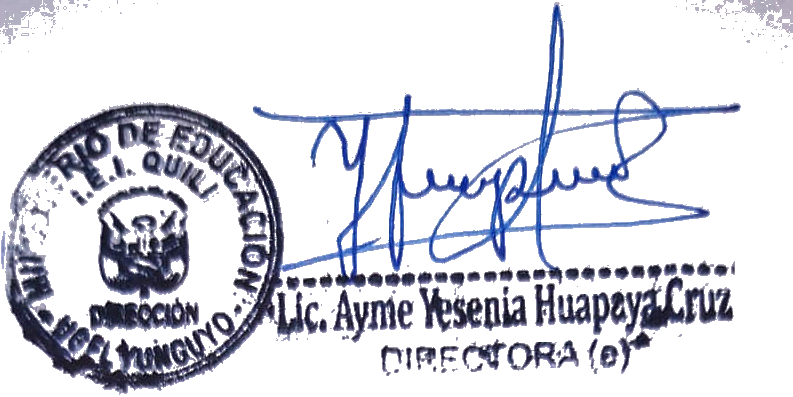 MINISTERIO DE EDUCACIÓN
I.E.I. QUILI
DIRECCIÓN
UGEL YUNGUYO
Lic. Ayme Yesenia Huapaya Cruz
DIRECTORA (e)